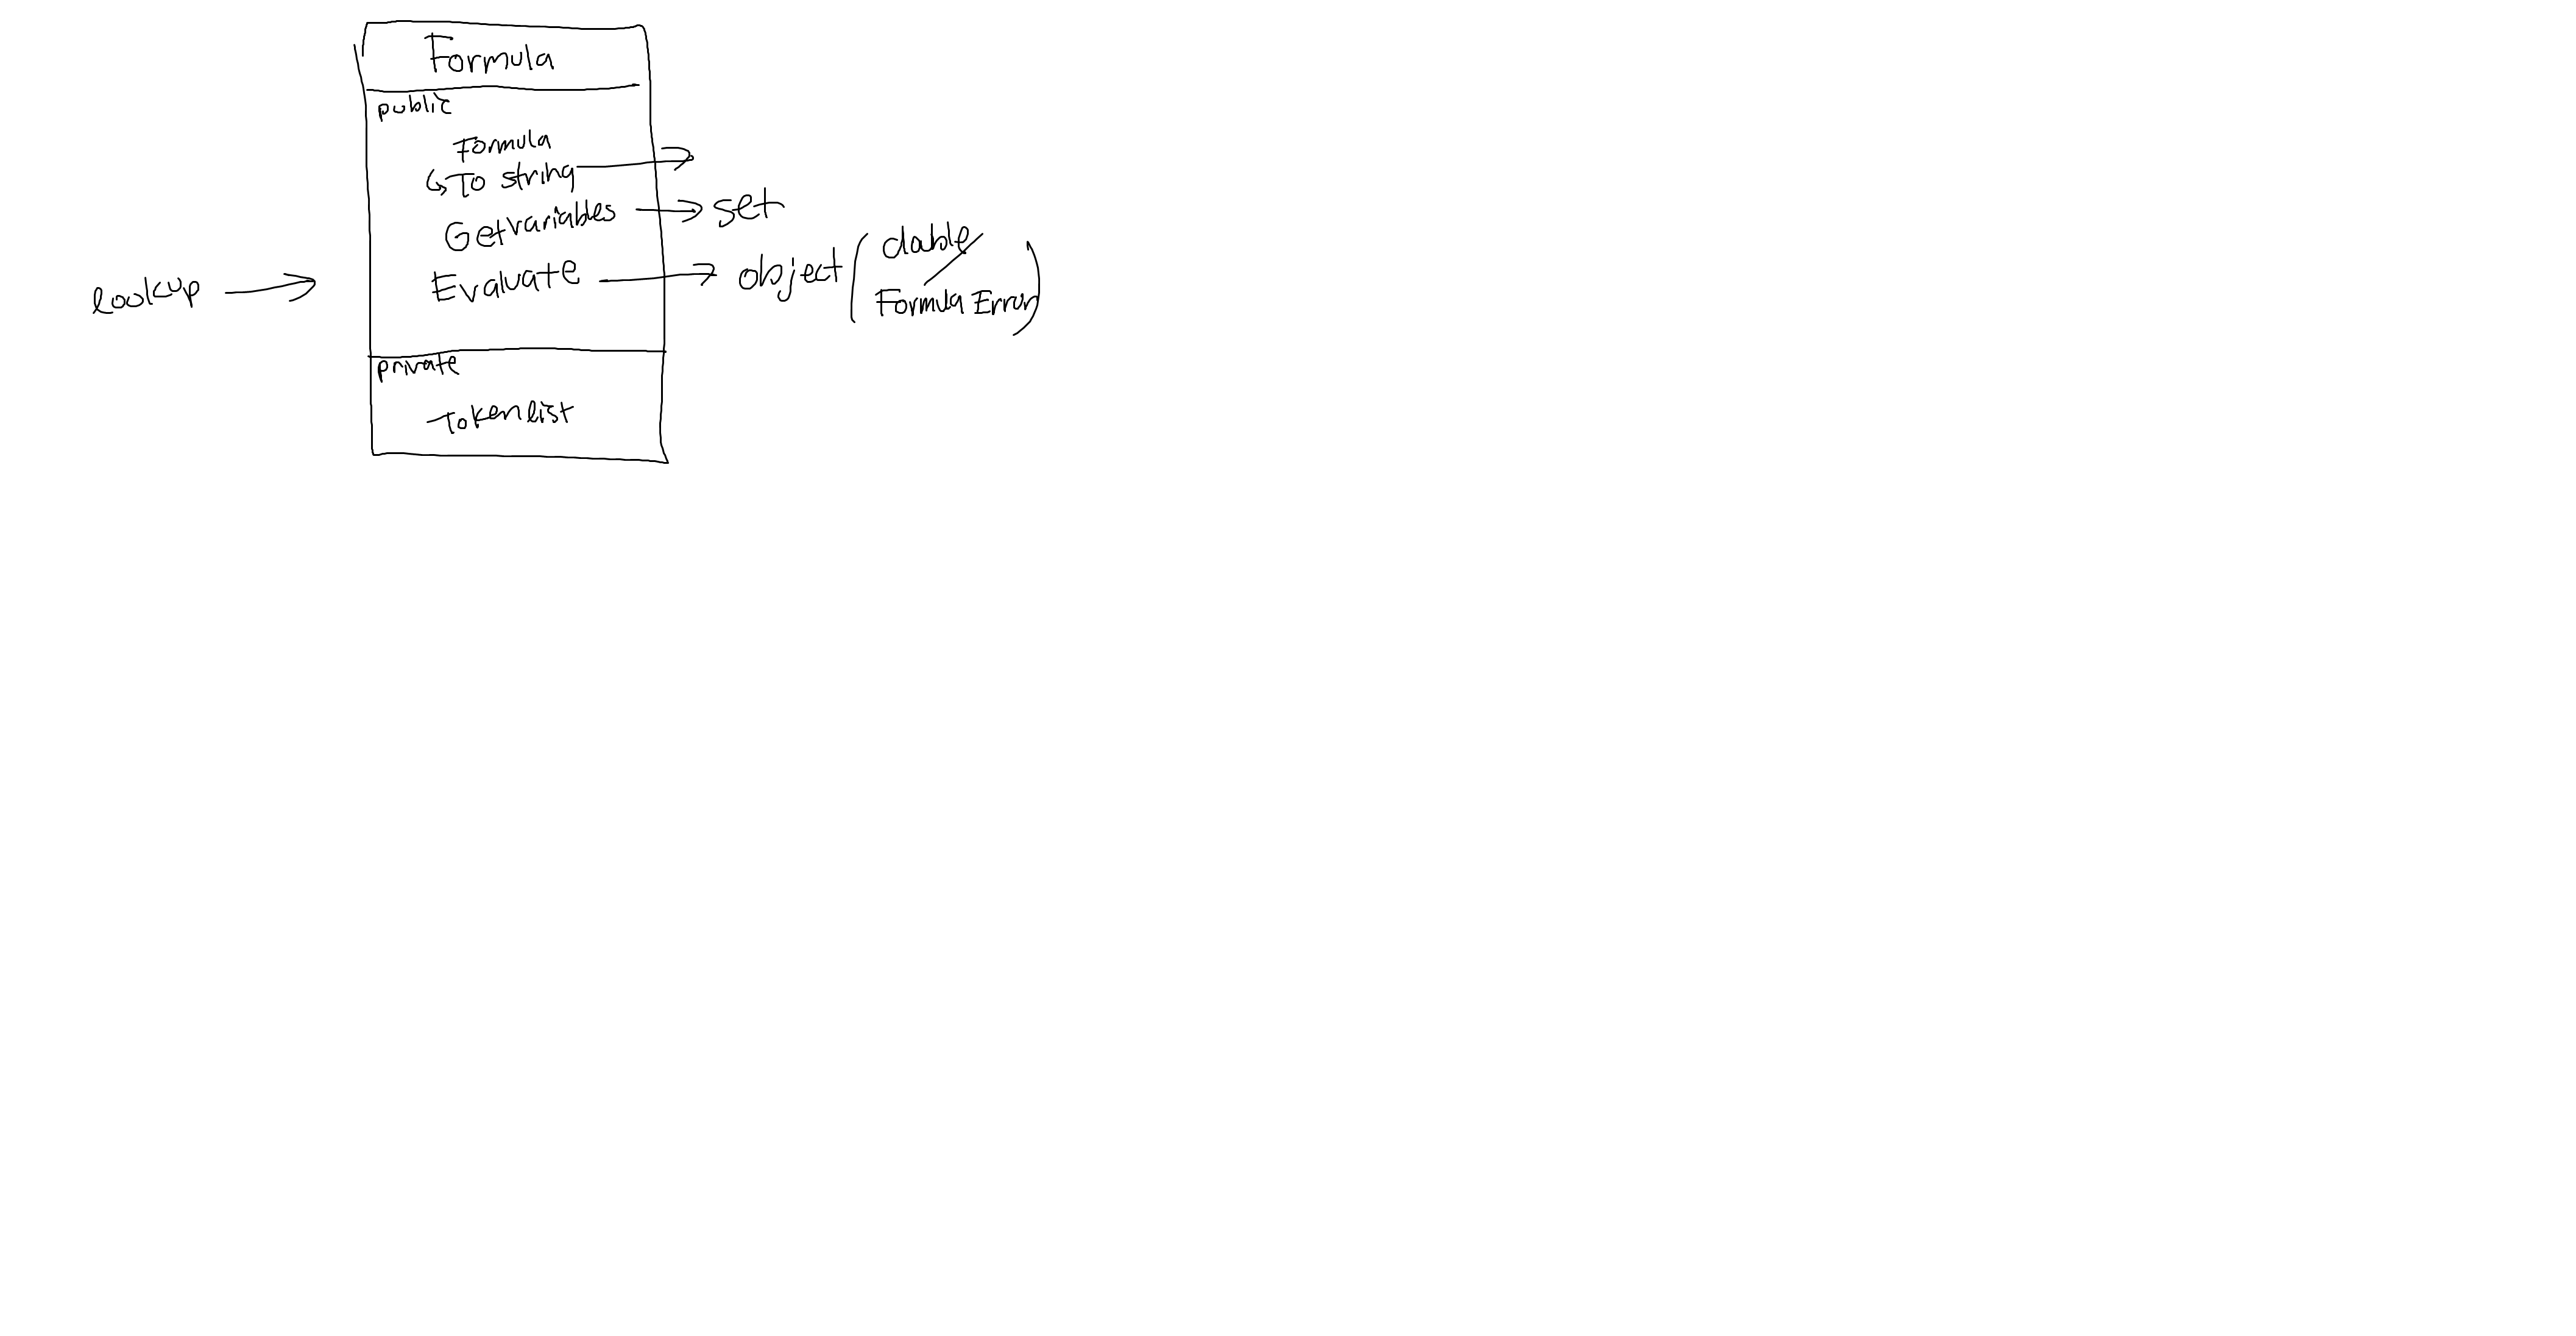 Formula
public
Formula
To string
Getvariables → set
lookup → Evaluate → object (dable / Formula Error)
private
Tokenlist